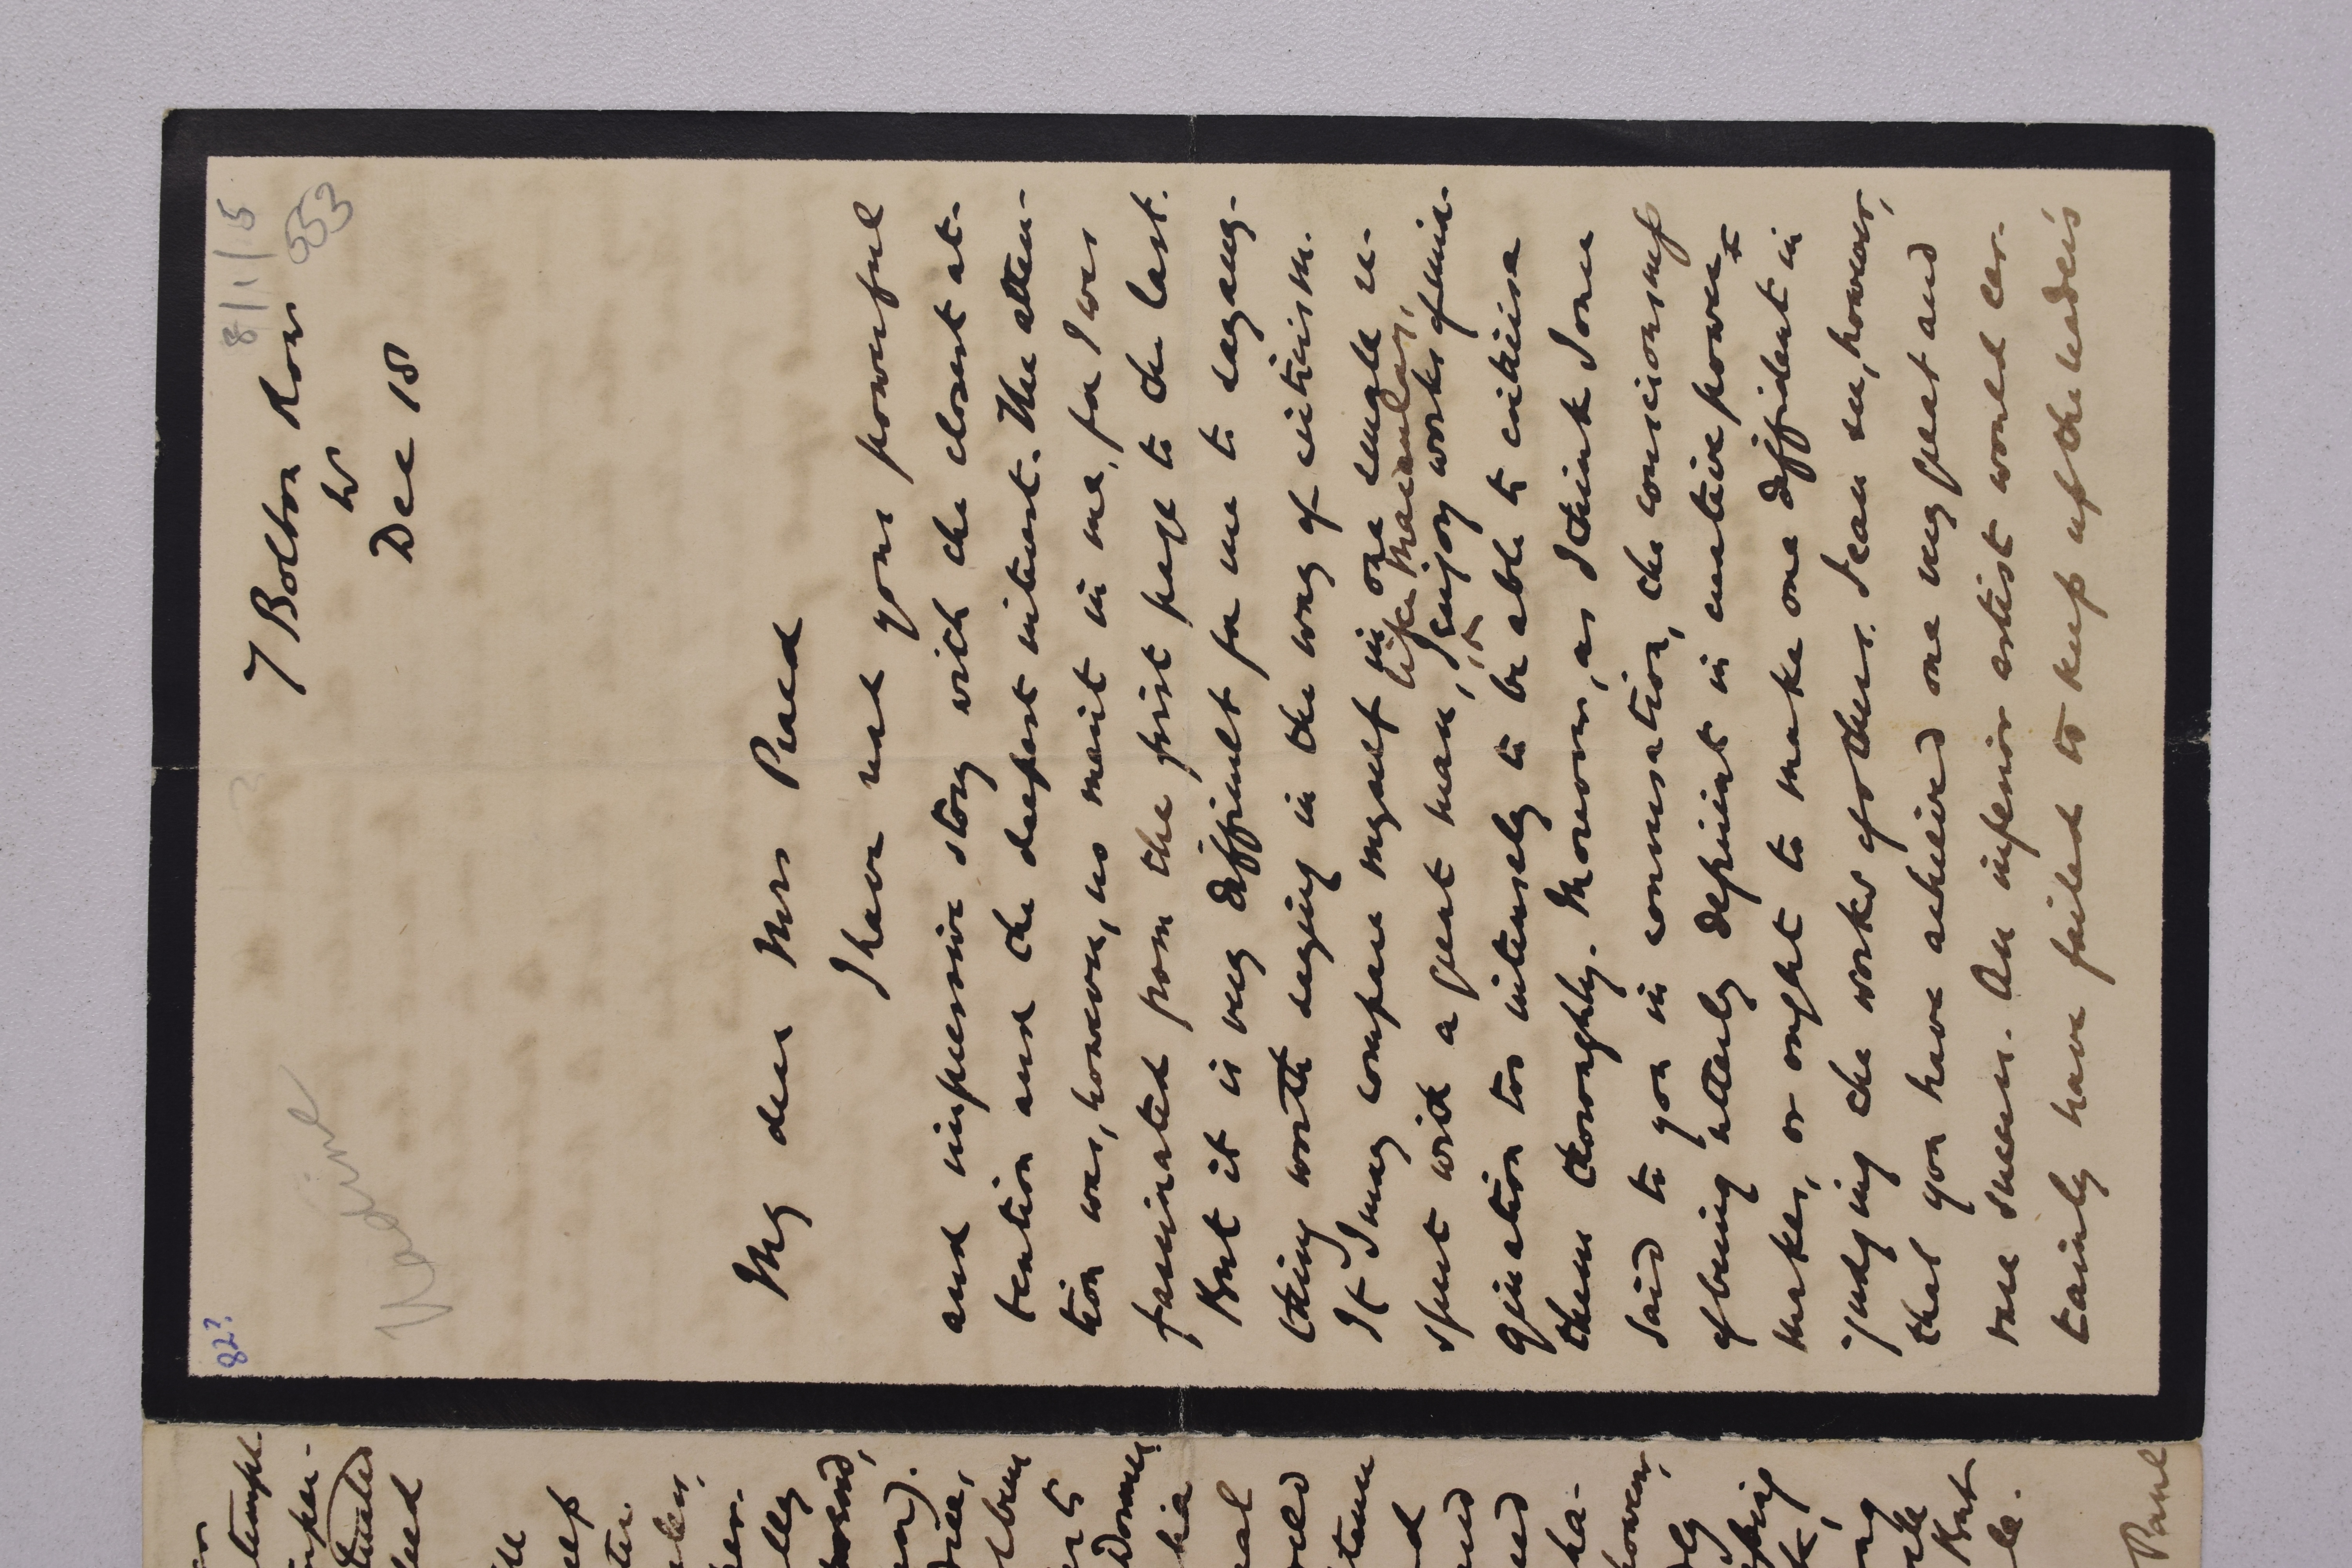 82?
8/1/15
553
Nadine
7 Bolton Row
W
Dec 18
My dear Mrs Praed
I have read your powerful
and impressive story with the closest at-
tention and the deepest interest. The atten-
tion was, however, no merit in me, for I was
fascinated from the first page to the last.
But it is very difficult for me to say any-
thing worth saying in the way of criticism.
If I may compare myself in one single re-
spect with a great man, like Macaulay, I enjoy works of ima-
gination too intensely to be able to criticise
them thoroughly. Moreover, as I think I once
said to you in conversation, the consciousness
of being utterly deficient in creative power
makes, or ought to make one diffident in
judging the works of others. I can see, however,
that you have achieved one very great and
rare success. An inferior artist would cer-
tainly have failed to keep up the reader's
Paul